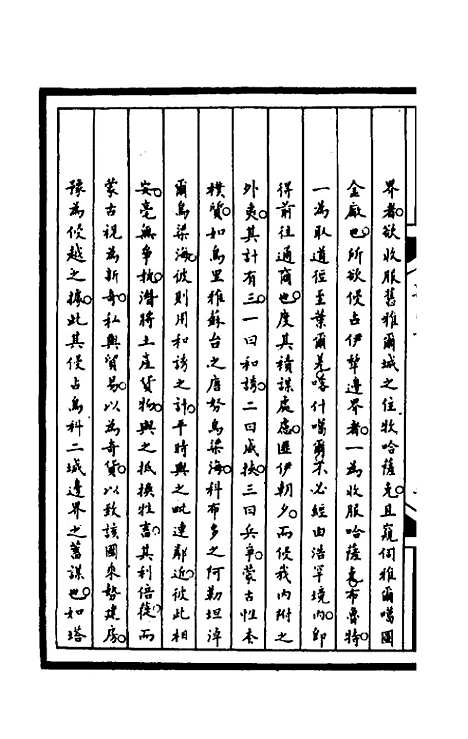 界者欲收服舊雅爾城之住牧哈薩克且窺伺雅爾噶圖
金廠也所欲侵占伊犂邊界者一為收服哈薩克布魯特
一為取道徑至葉爾羌喀什噶爾不必經由浩罕境內即
得前往通商也度其積謀處慮匪伊朝夕而侵我內附之
外夷其計有三一曰和誘二曰威挾三曰兵爭蒙古性本
樸質如烏里雅蘇台之唐努烏梁海科布多之阿勒坦淖
爾烏梁海彼則用和誘之計平時與之毗連鄰近彼此相
安毫無爭執潛將土產貨物與之抵換牲畜其利倍蓰而
蒙古視為新奇私與貿易以為奇貨以致該國乘勢建房
豫為侵越之據此其侵占烏科二城邊界之蓄謀也如塔